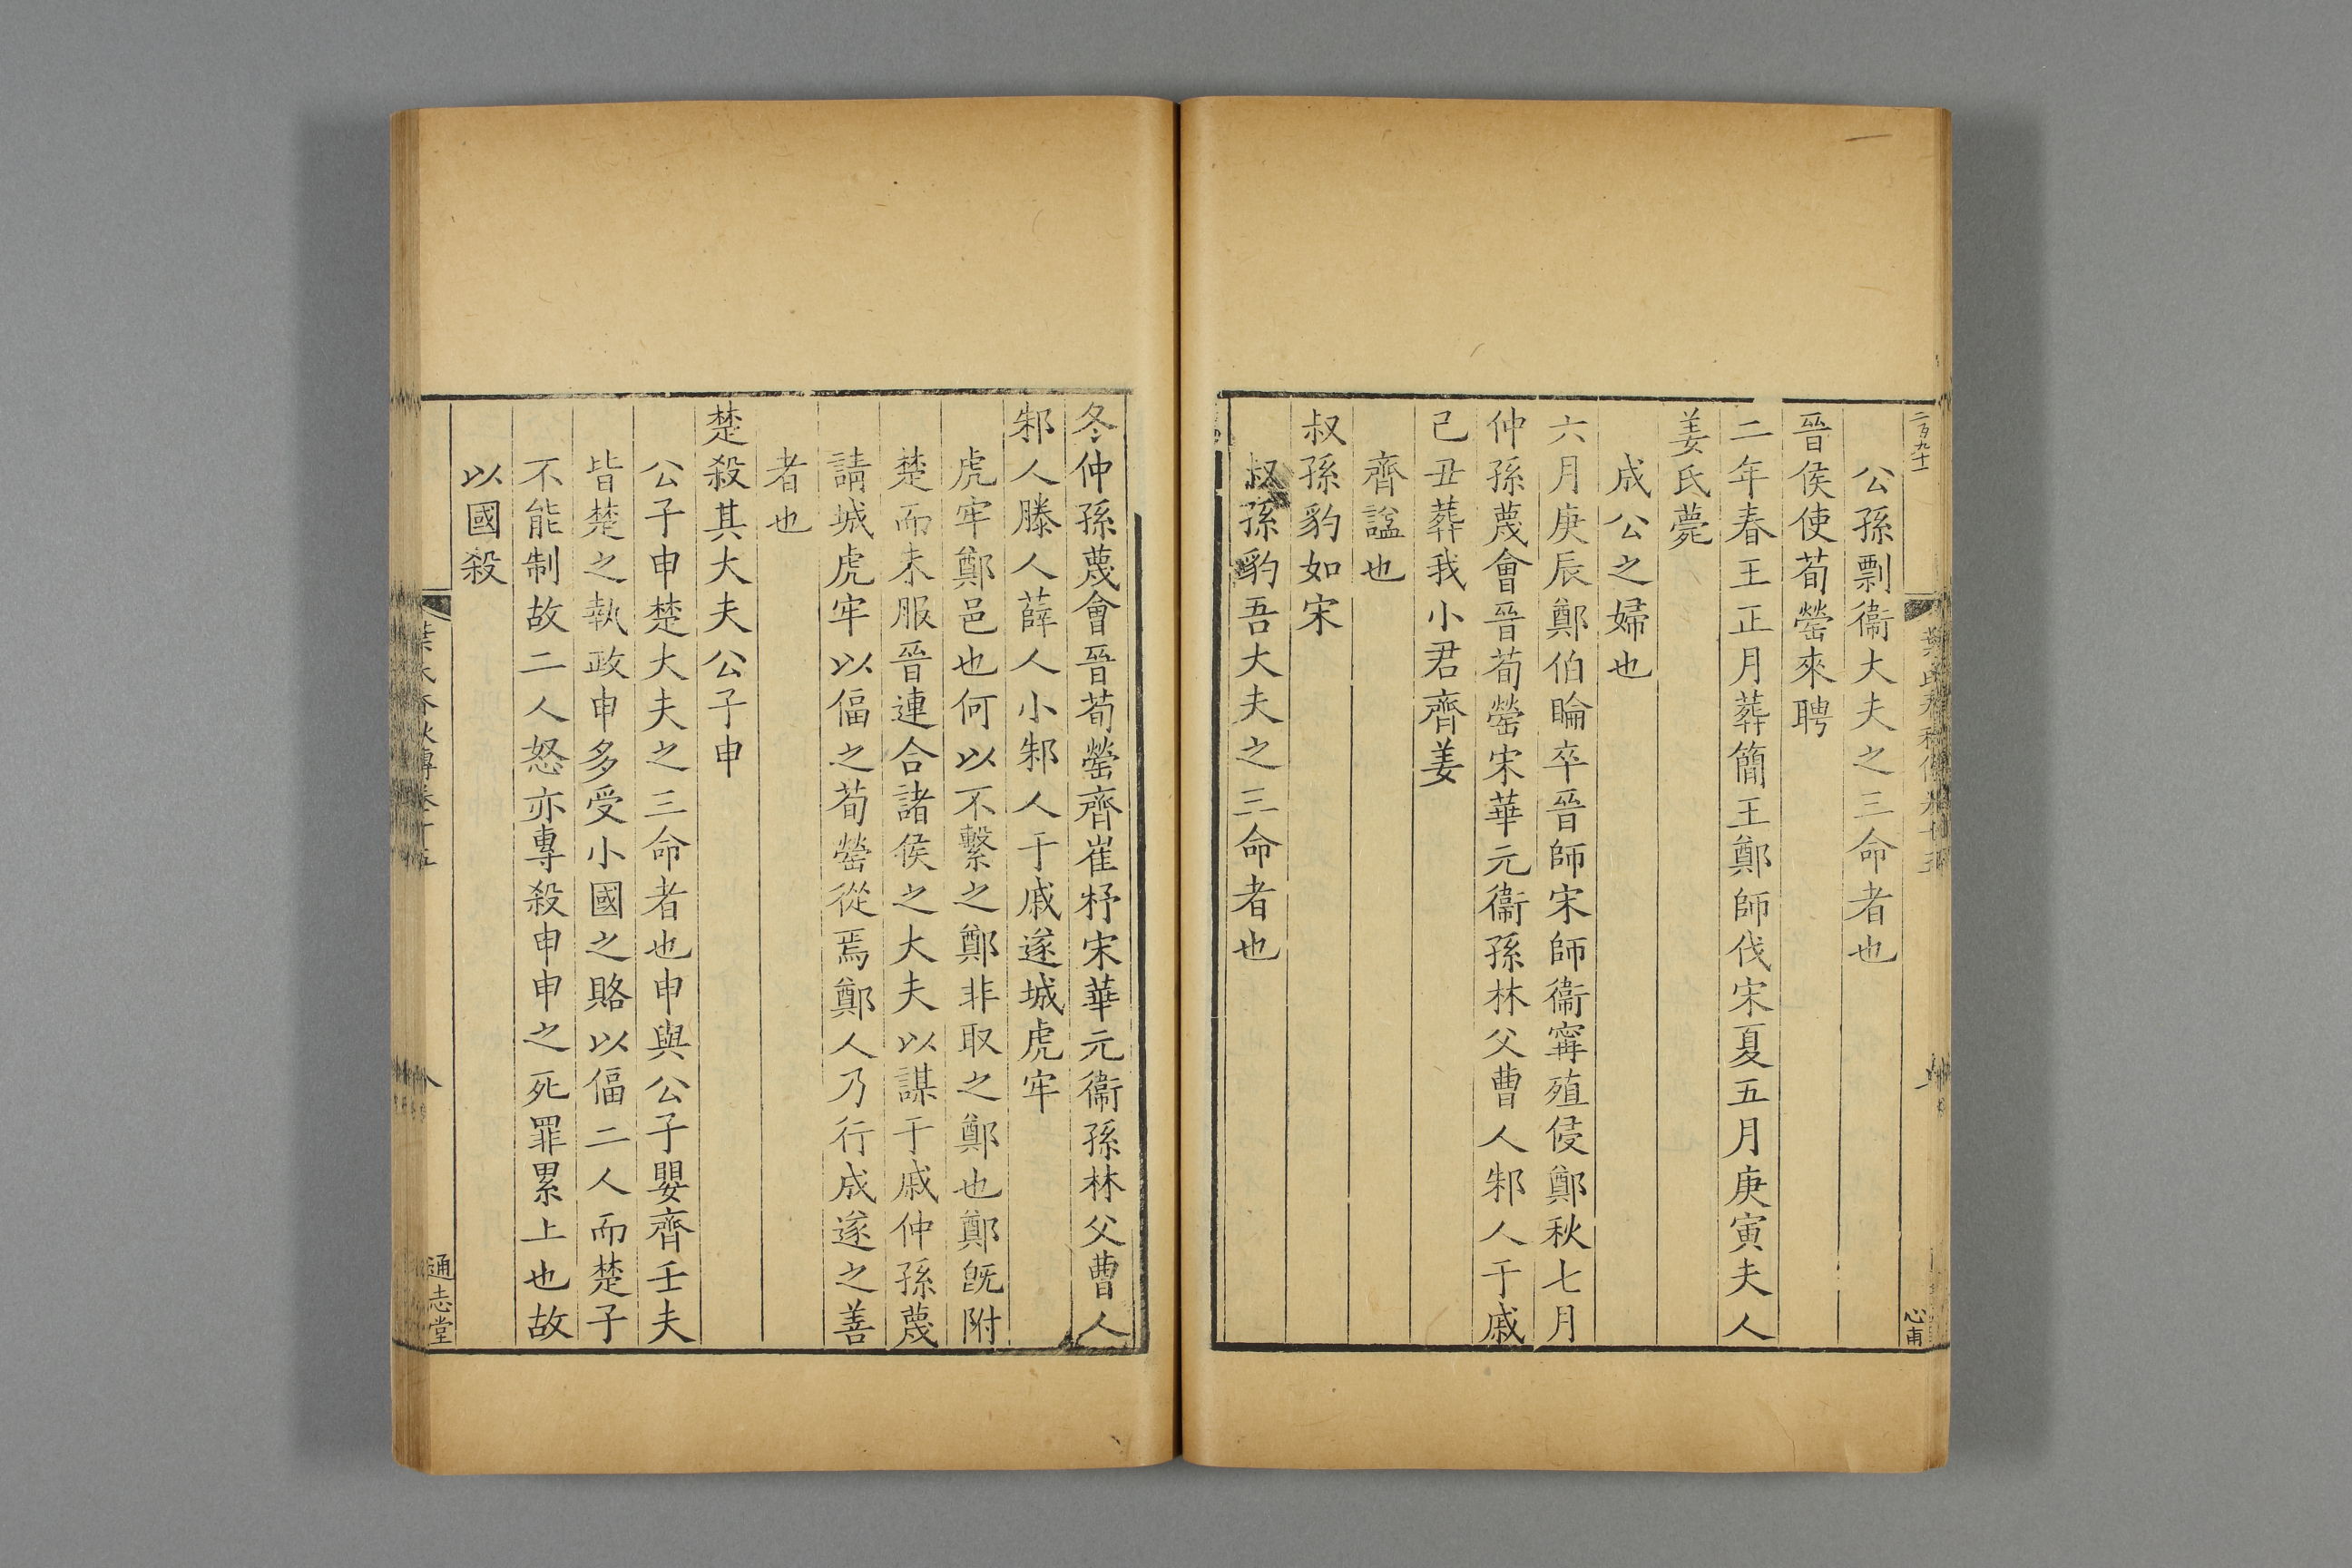 二百九十
公孫剽衞大夫之三命者也
晉侯使荀罃來聘
二年春王正月葬簡王鄭師伐宋夏五月庚寅夫人
姜氏薨
成公之婦也
六月庚辰鄭伯睔卒晉師宋師衞甯殖侵鄭秋七月
仲孫蔑會晉荀罃宋華元衞孫林父曹人邾人于戚
己丑葬我小君齊姜
齊諡也
叔孫豹如宋
叔孫豹吾大夫之三命者也
心甫
冬仲孫蔑會晉荀罃齊崔杼宋華元衞孫林父曹人
邾人滕人薛人小邾人于戚遂城虎牢
虎牢鄭邑也何以不繫之鄭非取之鄭也鄭旣附
楚而未服晉連合諸侯之大夫以謀于戚仲孫蔑
請城虎牢以偪之荀罃從焉鄭人乃行成遂之善
者也
楚殺其大夫公子申
公子申楚大夫之三命者也申與公子嬰齊壬夫
皆楚之執政申多受小國之賂以偪二人而楚子
不能制故二人怒亦專殺申申之死罪累上也故
以國殺
葉氏春秋傳卷十五
八
通志堂